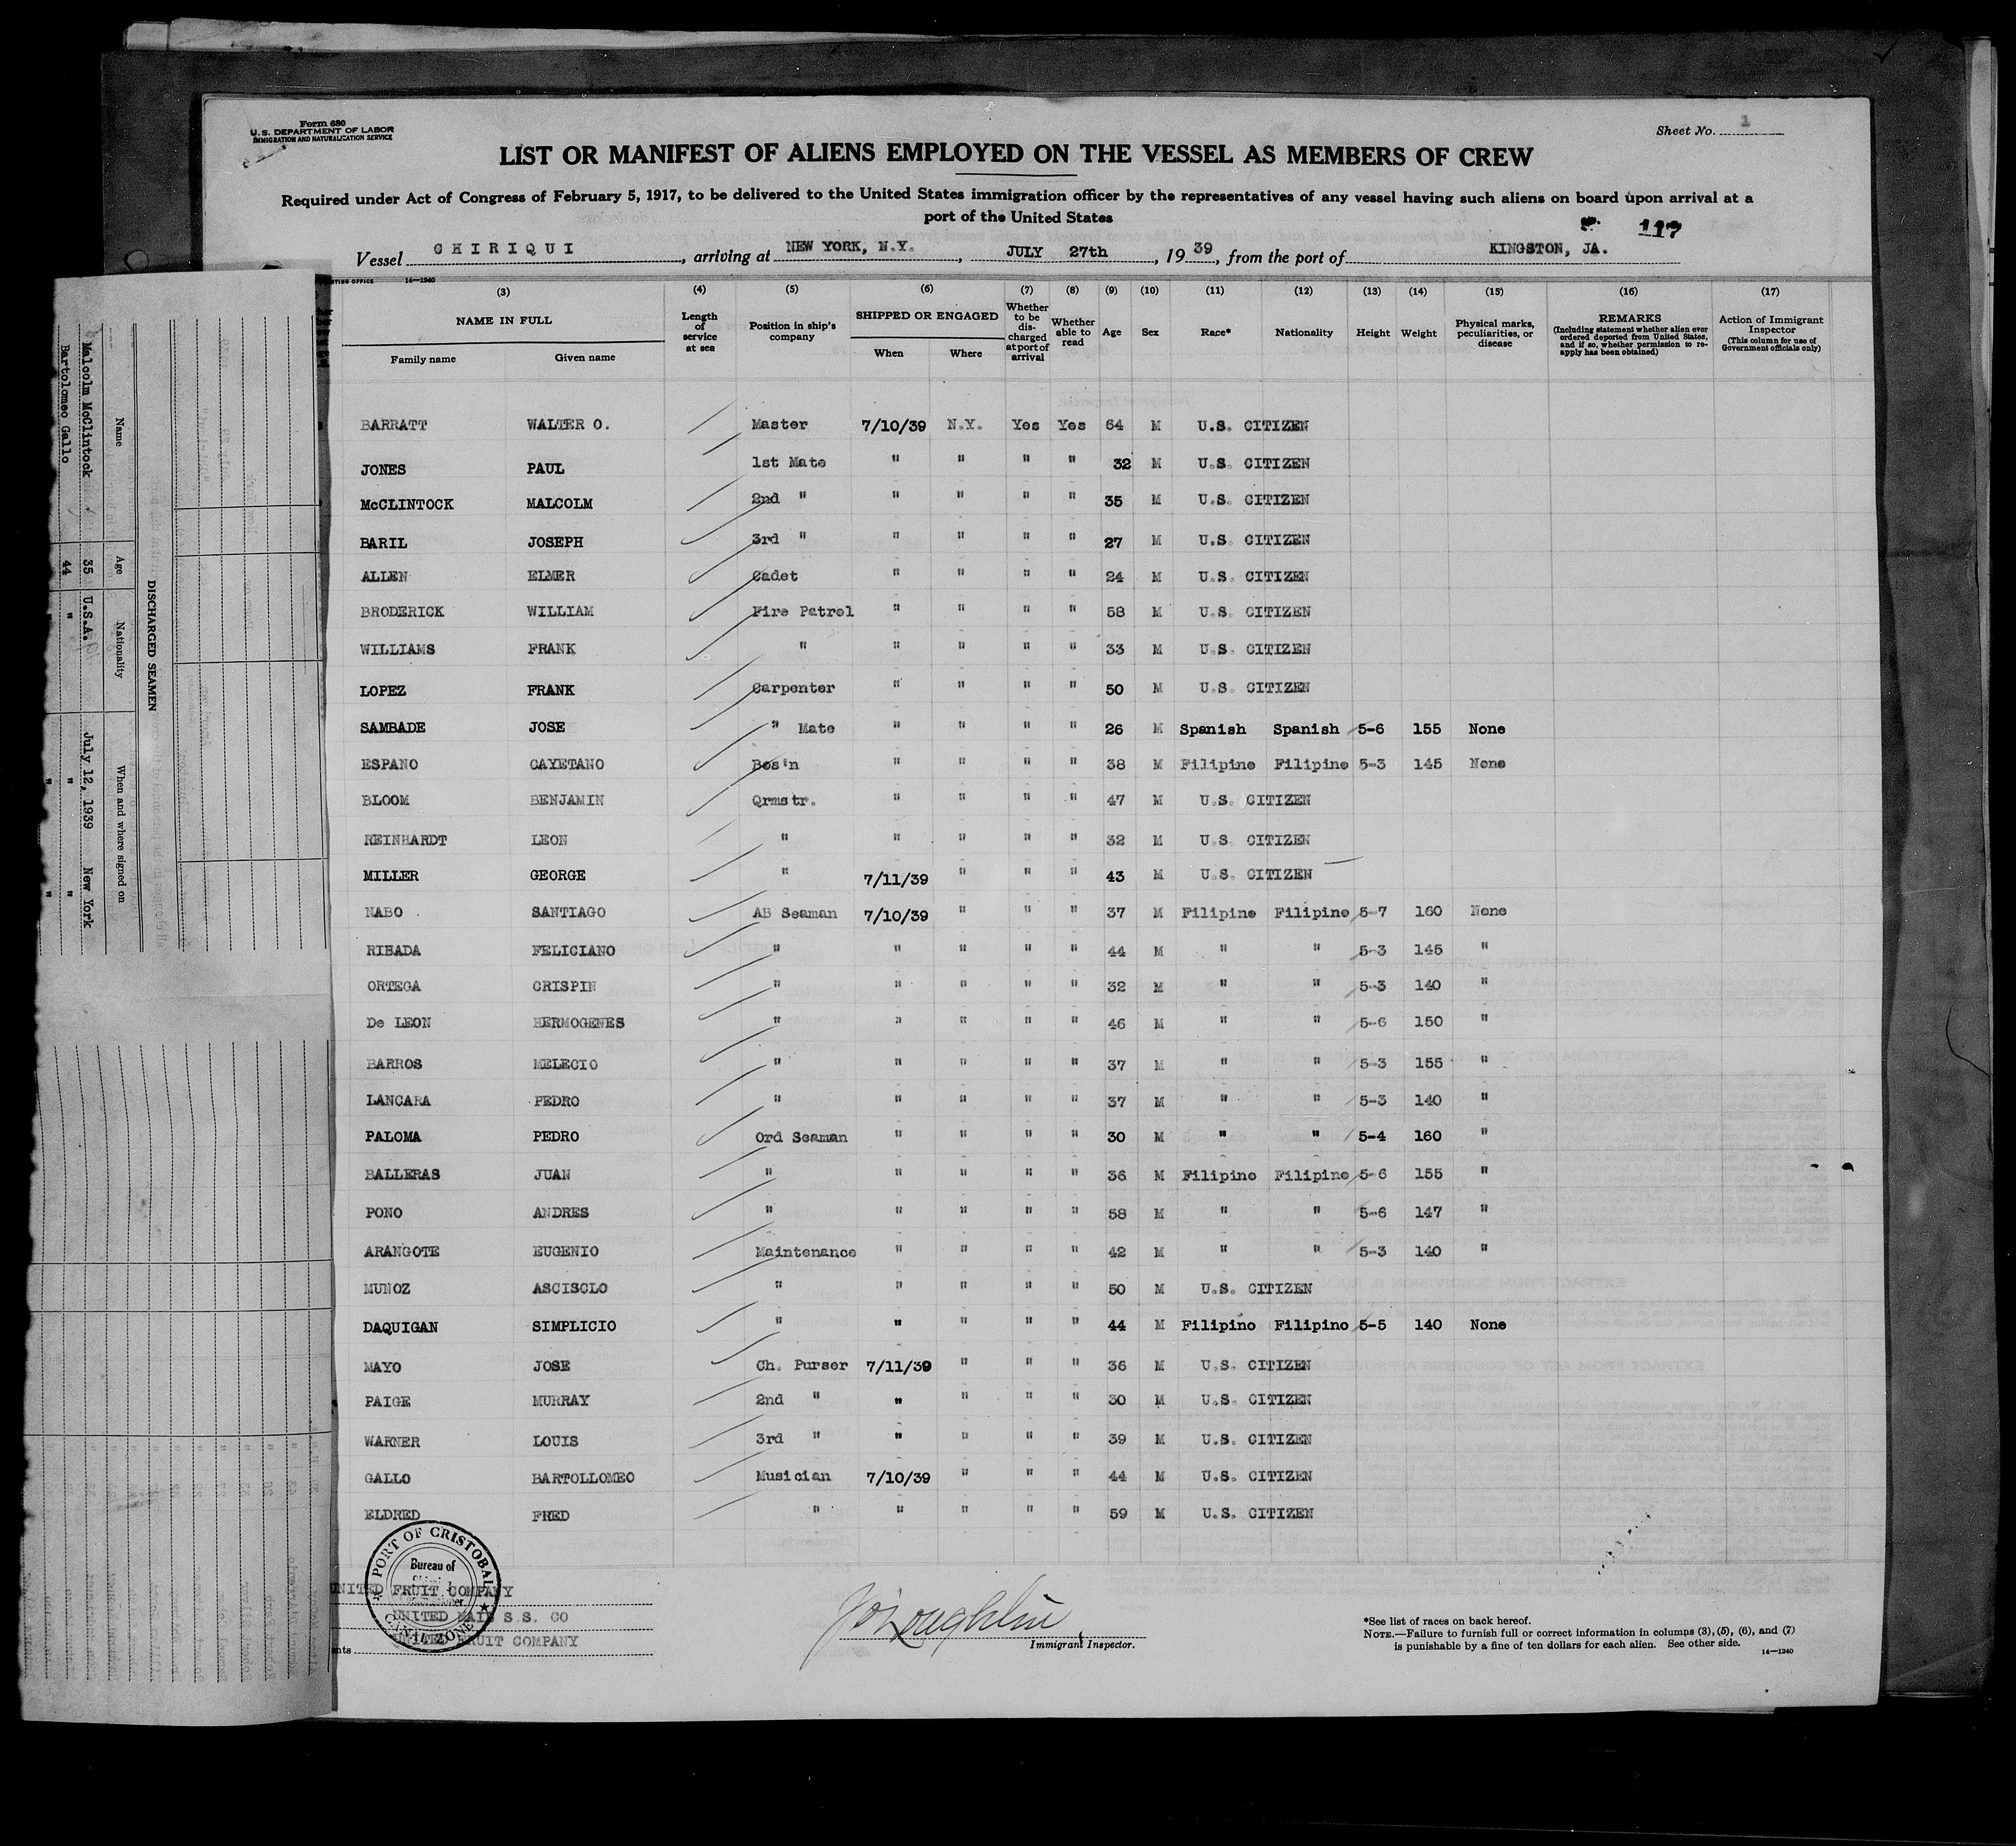 Form 680
U.S. DEPARTMENT OF LABOR
IMMIGRATION AND NATURALIZATION SERVICE
Sheet No. 1
LIST OR MANIFEST OF ALIENS EMPLOYED ON THE VESSEL AS MEMBERS OF CREW
Required under Act of Congress of February 5, 1917, to be delivered to the United States immigration officer by the representatives of any vessel having such aliens on board upon arrival at a
port of the United States
117
Vessel CHIRIQUI, arriving at NEW YORK, N.Y., JULY 27th, 1939, from the port of KINGSTON, JA.
14—1240
(3) (4) (5) (6) (7) (8) (9) (10) (11) (12) (13) (14) (15) (16) (17)
NAME IN FULL Family name Given name Length of service at sea Position in ship's company SHIPPED OR ENGAGED When Where Whether to be discharged at port of arrival Whether able to read Age Sex Race* Nationality Height Weight Physical marks, peculiarities, or disease REMARKS (Including statement whether alien ever ordered deported from United States, and if so, whether permission to re-apply has been obtained) Action of Immigrant Inspector (This column for use of Government officials only)
BARRATT WALTER O. Master 7/10/39 N.Y. Yes Yes 64 M U.S. CITIZEN
JONES PAUL 1st Mate " " " " 32 M U.S. CITIZEN
McCLINTOCK MALCOLM 2nd " " " " " 35 M U.S. CITIZEN
BARIL JOSEPH 3rd " " " " " 27 M U.S. CITIZEN
ALLEN ELMER Cadet " " " " 24 M U.S. CITIZEN
BRODERICK WILLIAM Fire Patrol " " " " 58 M U.S. CITIZEN
WILLIAMS FRANK " " " " " 33 M U.S. CITIZEN
LOPEZ FRANK Carpenter " " " " 50 M U.S. CITIZEN
SAMBADE JOSE " Mate " " " " 26 M Spanish Spanish 5-6 155 None
ESPANO CAYETANO Bos'n " " " " 38 M Filipino Filipino 5-3 145 None
BLOOM BENJAMIN Qrmstr. " " " " 47 M U.S. CITIZEN
REINHARDT LEON " " " " " 32 M U.S. CITIZEN
MILLER GEORGE " 7/11/39 " " " 43 M U.S. CITIZEN
NABO SANTIAGO AB Seaman 7/10/39 " " " 37 M Filipino Filipino 5-7 160 None
RIBADA FELICIANO " " " " " 44 M " " 5-3 145 "
ORTEGA CRISPIN " " " " " 32 M " " 5-3 140 "
De LEON HERMOGENES " " " " " 46 M " " 5-6 150 "
BARROS MELECIO " " " " " 37 M " " 5-3 155 "
LANCARA PEDRO " " " " " 37 M " " 5-3 140 "
PALOMA PEDRO Ord Seaman " " " " 30 M " " 5-4 160 "
BALLERAS JUAN " " " " " 36 M Filipino Filipino 5-6 155 "
PONO ANDRES " " " " " 58 M " " 5-6 147 "
ARANGOTE EUGENIO Maintenance " " " " 42 M " " 5-3 140 "
MUNOZ ASCISCLO " " " " " 50 M U.S. CITIZEN
DAQUIGAN SIMPLICIO " " " " " 44 M Filipino Filipino 5-5 140 None
MAYO JOSE Ch. Purser 7/11/39 " " " 36 M U.S. CITIZEN
PAIGE MURRAY 2nd " " " " " 30 M U.S. CITIZEN
WARNER LOUIS 3rd " " " " " 39 M U.S. CITIZEN
GALLO BARTOLLOMEO Musician 7/10/39 " " " 44 M U.S. CITIZEN
ELDRED FRED " " " " " 59 M U.S. CITIZEN
PORT OF CRISTOBAL
Bureau of
CANAL ZONE
UNITED FRUIT COMPANY
UNITED MAIL S.S. CO
UNITED FRUIT COMPANY
Immigrant Inspector.
*See list of races on back hereof.
NOTE.—Failure to furnish full or correct information in columns (3), (5), (6), and (7)
is punishable by a fine of ten dollars for each alien. See other side.
14—1240
DISCHARGED SEAMEN
Name Age Nationality When and where signed on
Malcolm McClintock 35 U.S.A. July 12, 1939 New York
Bartolomeo Gallo 44 " " "